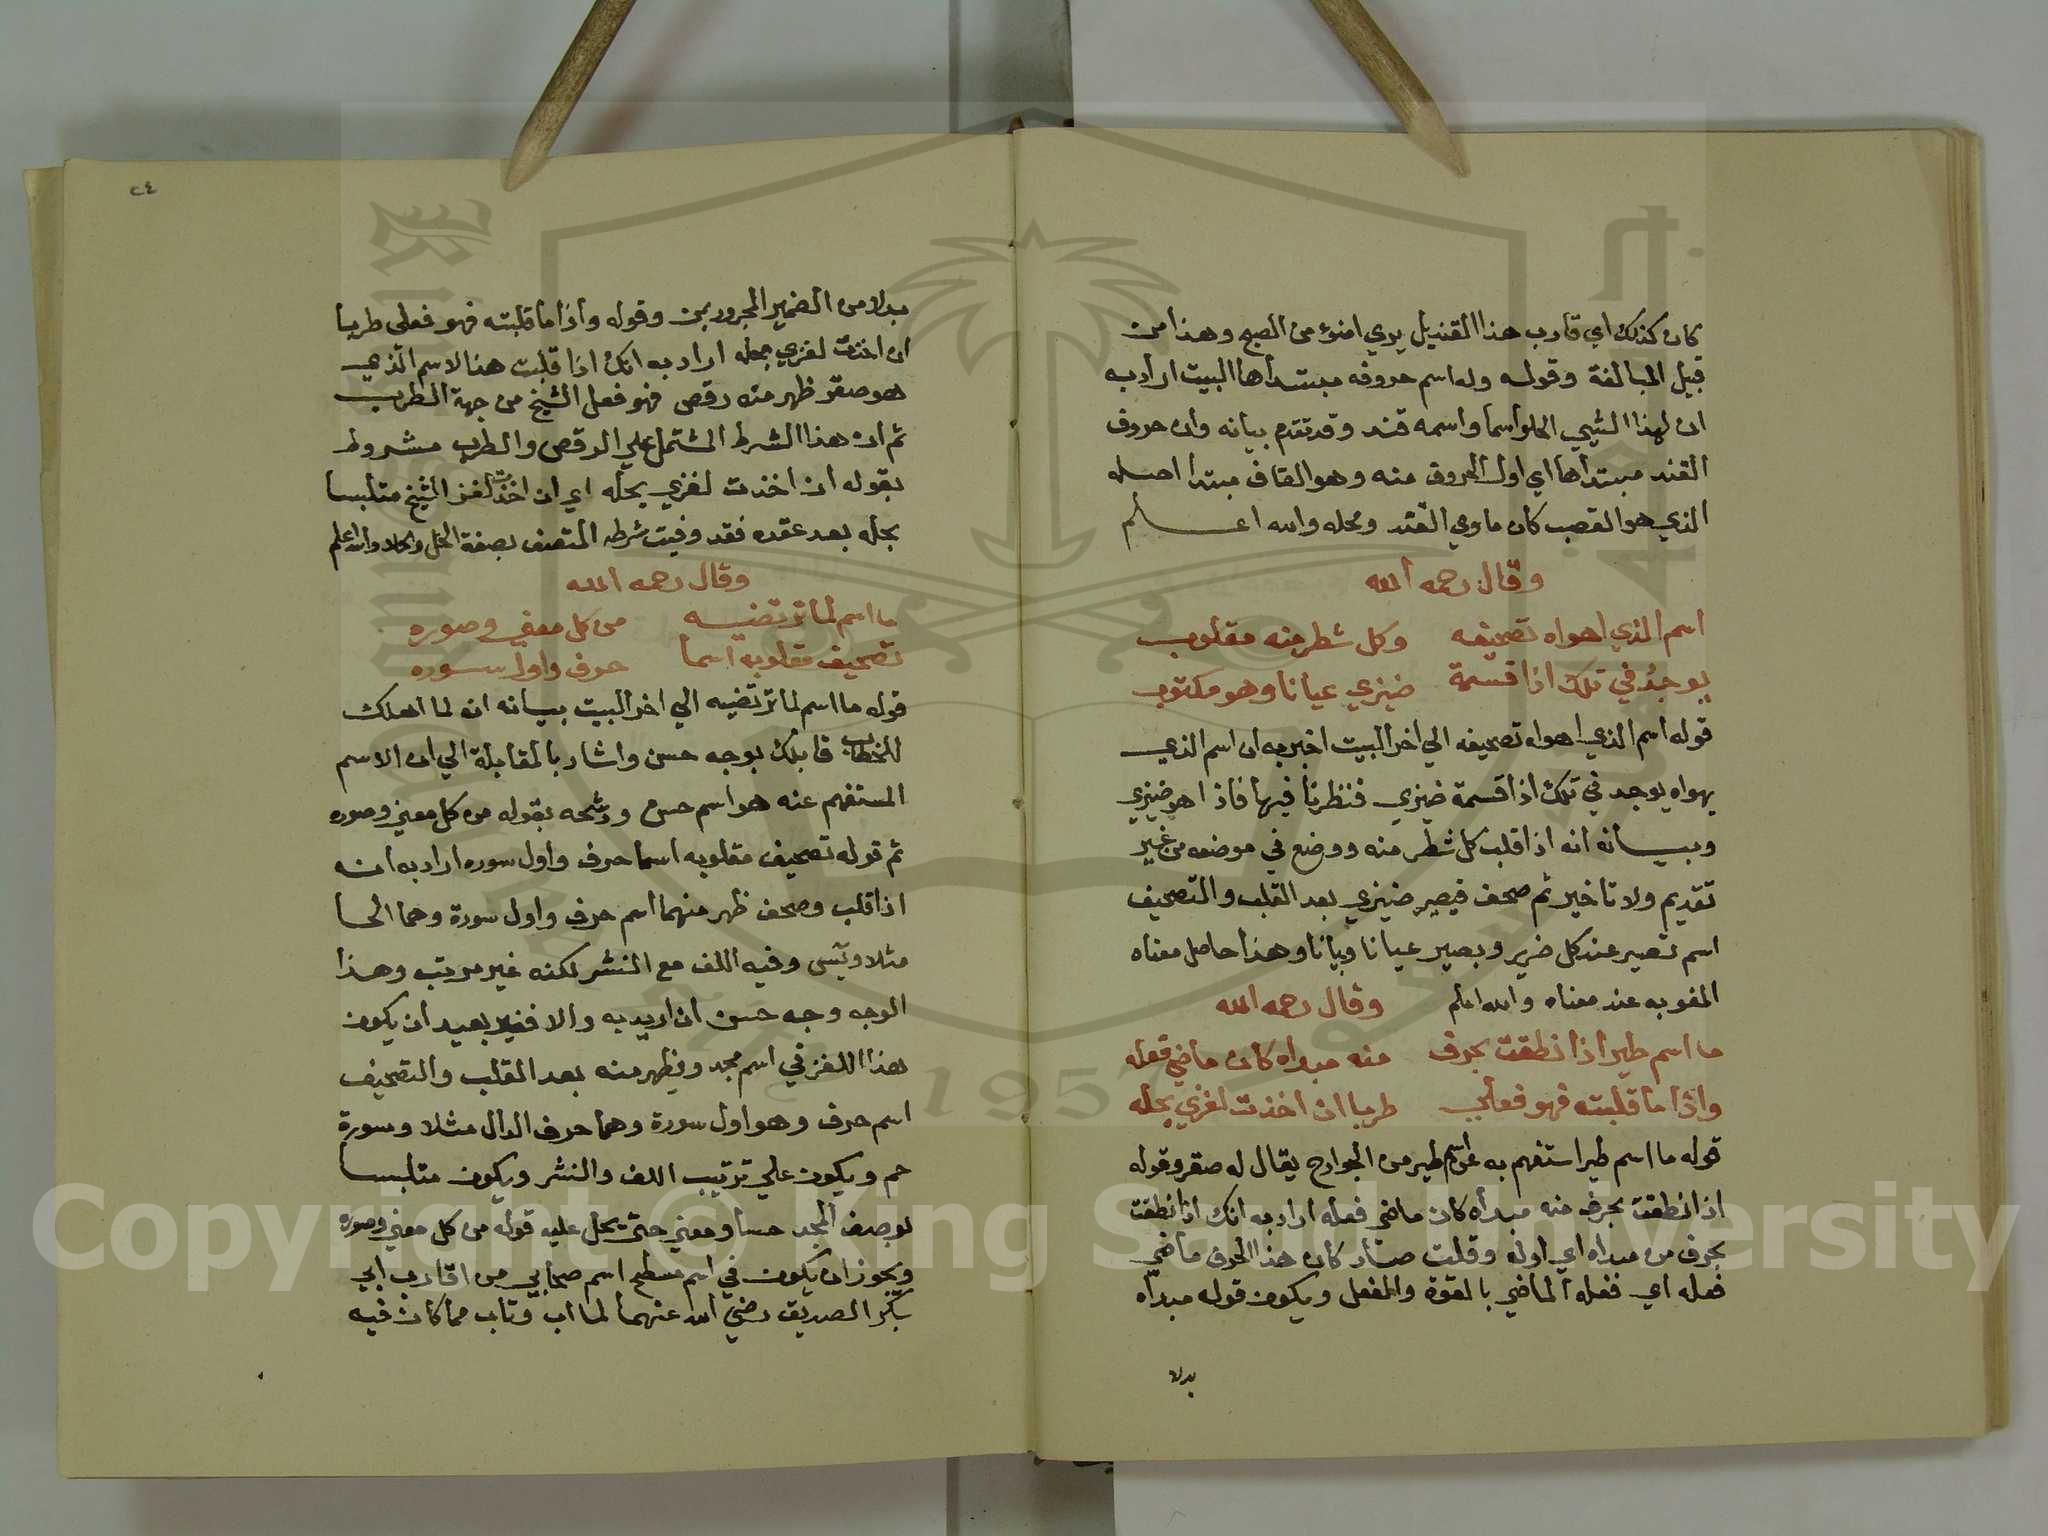 كان كذلك اي قارب هذا القنديل يري اضوء من الصبح وهذا من
قبيل المبالغة وقوله وله اسم حروفه مبتدأها البيت اراد به
ان لهذا الشيي الحلو اسما واسمه قند وقد تقدم بيانه وان حروف
القند مبتداها اي اول الحروف منه وهو القاف مبتدا اصله
الذي هو القصب كان ماوي القند ومحله والله اعلم
وقال رحمه الله
اسم الذي اهواه تصحيفه وكل شطر منه مقلوب
يوجد في تلك اذا قسمة ضيزي عيانا وهو مكتوب
قوله اسم الذي اهواه تصحيفه الي اخر البيت اخبر به ان اسم الذي
يهواه يوجد في تلك اذا قسمة ضيزي فنظرنا فيها فاذا هو ضيزي
وبيانه انه اذا قلب كل شطر منه ووضع في موضعه من غير
تقديم ولا تاخير ثم صحف فيصير ضيزي بعد القلب والتصحيف
اسم نصير عند كل ضرير وبصير عيانا وبيانا وهذا حاصل معناه
المفوبه عند معناه والله اعلم وقال رحمه الله
ما اسم طير اذا نطقت بحرف منه مبداه كان ماضي فعله
واذا ما قلبته فهو فعلي طربا ان اخذت لغزي بحله
قوله ما اسم طير استفهم به عن اسم طير من الجوارح يقال له صقر وقوله
اذا نطقت بحرف منه مبدأه كان ماضي فعله اراد به انك اذا نطقت
بحرف من مبداه اي اوله وقلت صاد كان هذا الحرف ماضي
فعله اي فعله الماضي بالقوة والفعل ويكون قوله مبدأه
بدلا
٢٤
بدلا من الضمير المجرور بمن وقوله واذا ما قلبته فهو فعلي طربا
ان اخذت لغزي بحله اراد به انك اذا قلبت هذا الاسم الذي
هو صقر ظهر منه رقص فهو فعل الشيخ من جهة الطرب
ثم ان هذا الشرط المشتمل علي الرقص والطرب مشروط
بقوله ان اخذت لغزي بحله اي ان اخذت لغز الشيخ متلبسا
بحله بعد عقده فقد وفيت شرطه المتصف بصفة الحل والله اعلم
وقال رحمه الله
ما اسم لما ترتضيه من كل معني وصوره
تصحيف مقلوبه اسما حرف واول سوره
قوله ما اسم لما ترتضيه الي اخر البيت بيانه انه لما اهلك
للخطاب قابلك بوجه حسن واشار بالمقابلة الي ان الاسم
المستفهم عنه هو اسم حسن ورشحه بقوله من كل معني وصوره
ثم قوله تصحيف مقلوبه اسما حرف واول سوره اراد به انه
اذا قلب وصحف ظهر منهما اسم حرف واول سورة وهما الحا
مثلا ويس وفيه اللف مع النشر لكنه غير مرتب وهذا
الوجه وجه حسن ان اريد به والا فغير بعيد ان يكون
هذا اللغز في اسم مجد ويظهر منه بعد القلب والتصحيف
اسم حرف وهو اول سورة وهما حرف الدال مثلا وسورة
حم ويكون علي ترتيب اللف والنشر ويكون متلبسا
بوصف المجد حسا ومعني حتي يحل عليه قوله من كل معني وصوره
ويجوز ان يكون في اسم مسطح اسم صحابي من اقارب ابي
بكر الصديق رضي الله عنهما لما اب وتاب مما كان فيه
Copyright © King Saud University
1957